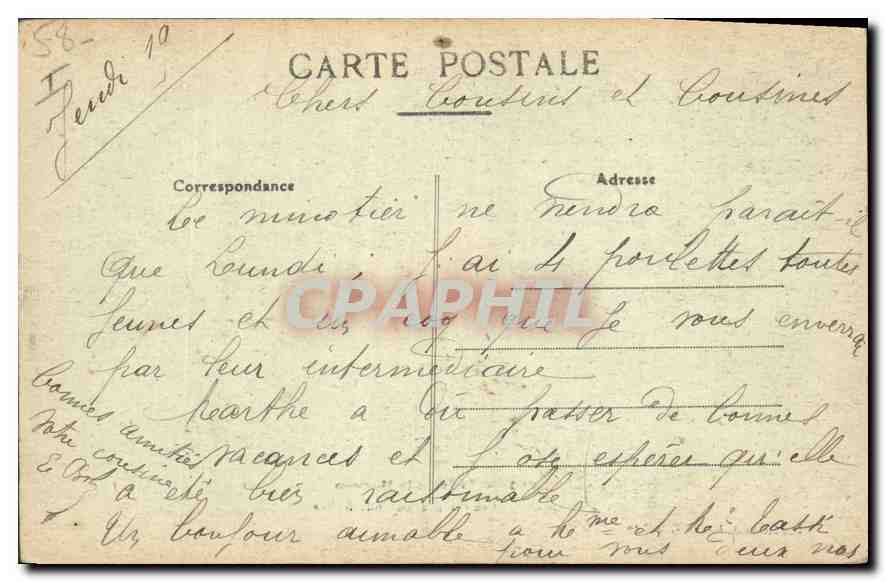 58-
I
Jeudi 19
CARTE POSTALE
Chers Cousins et Cousines
Correspondance
Adresse
Le minotier ne viendra parait-il
que Lundi, j'ai 4 poulettes toutes
jeunes et un coq que je vous enverrai
par leur intermédiaire
Marthe a dû passer de bonnes
vacances et j'ose espérer qu'elle
a été bien raisonnable
Un bonjour aimable a Mme et Mr
pour vous deux nos
bonnes amitiés
Votre cousine
E
CPAPHIL